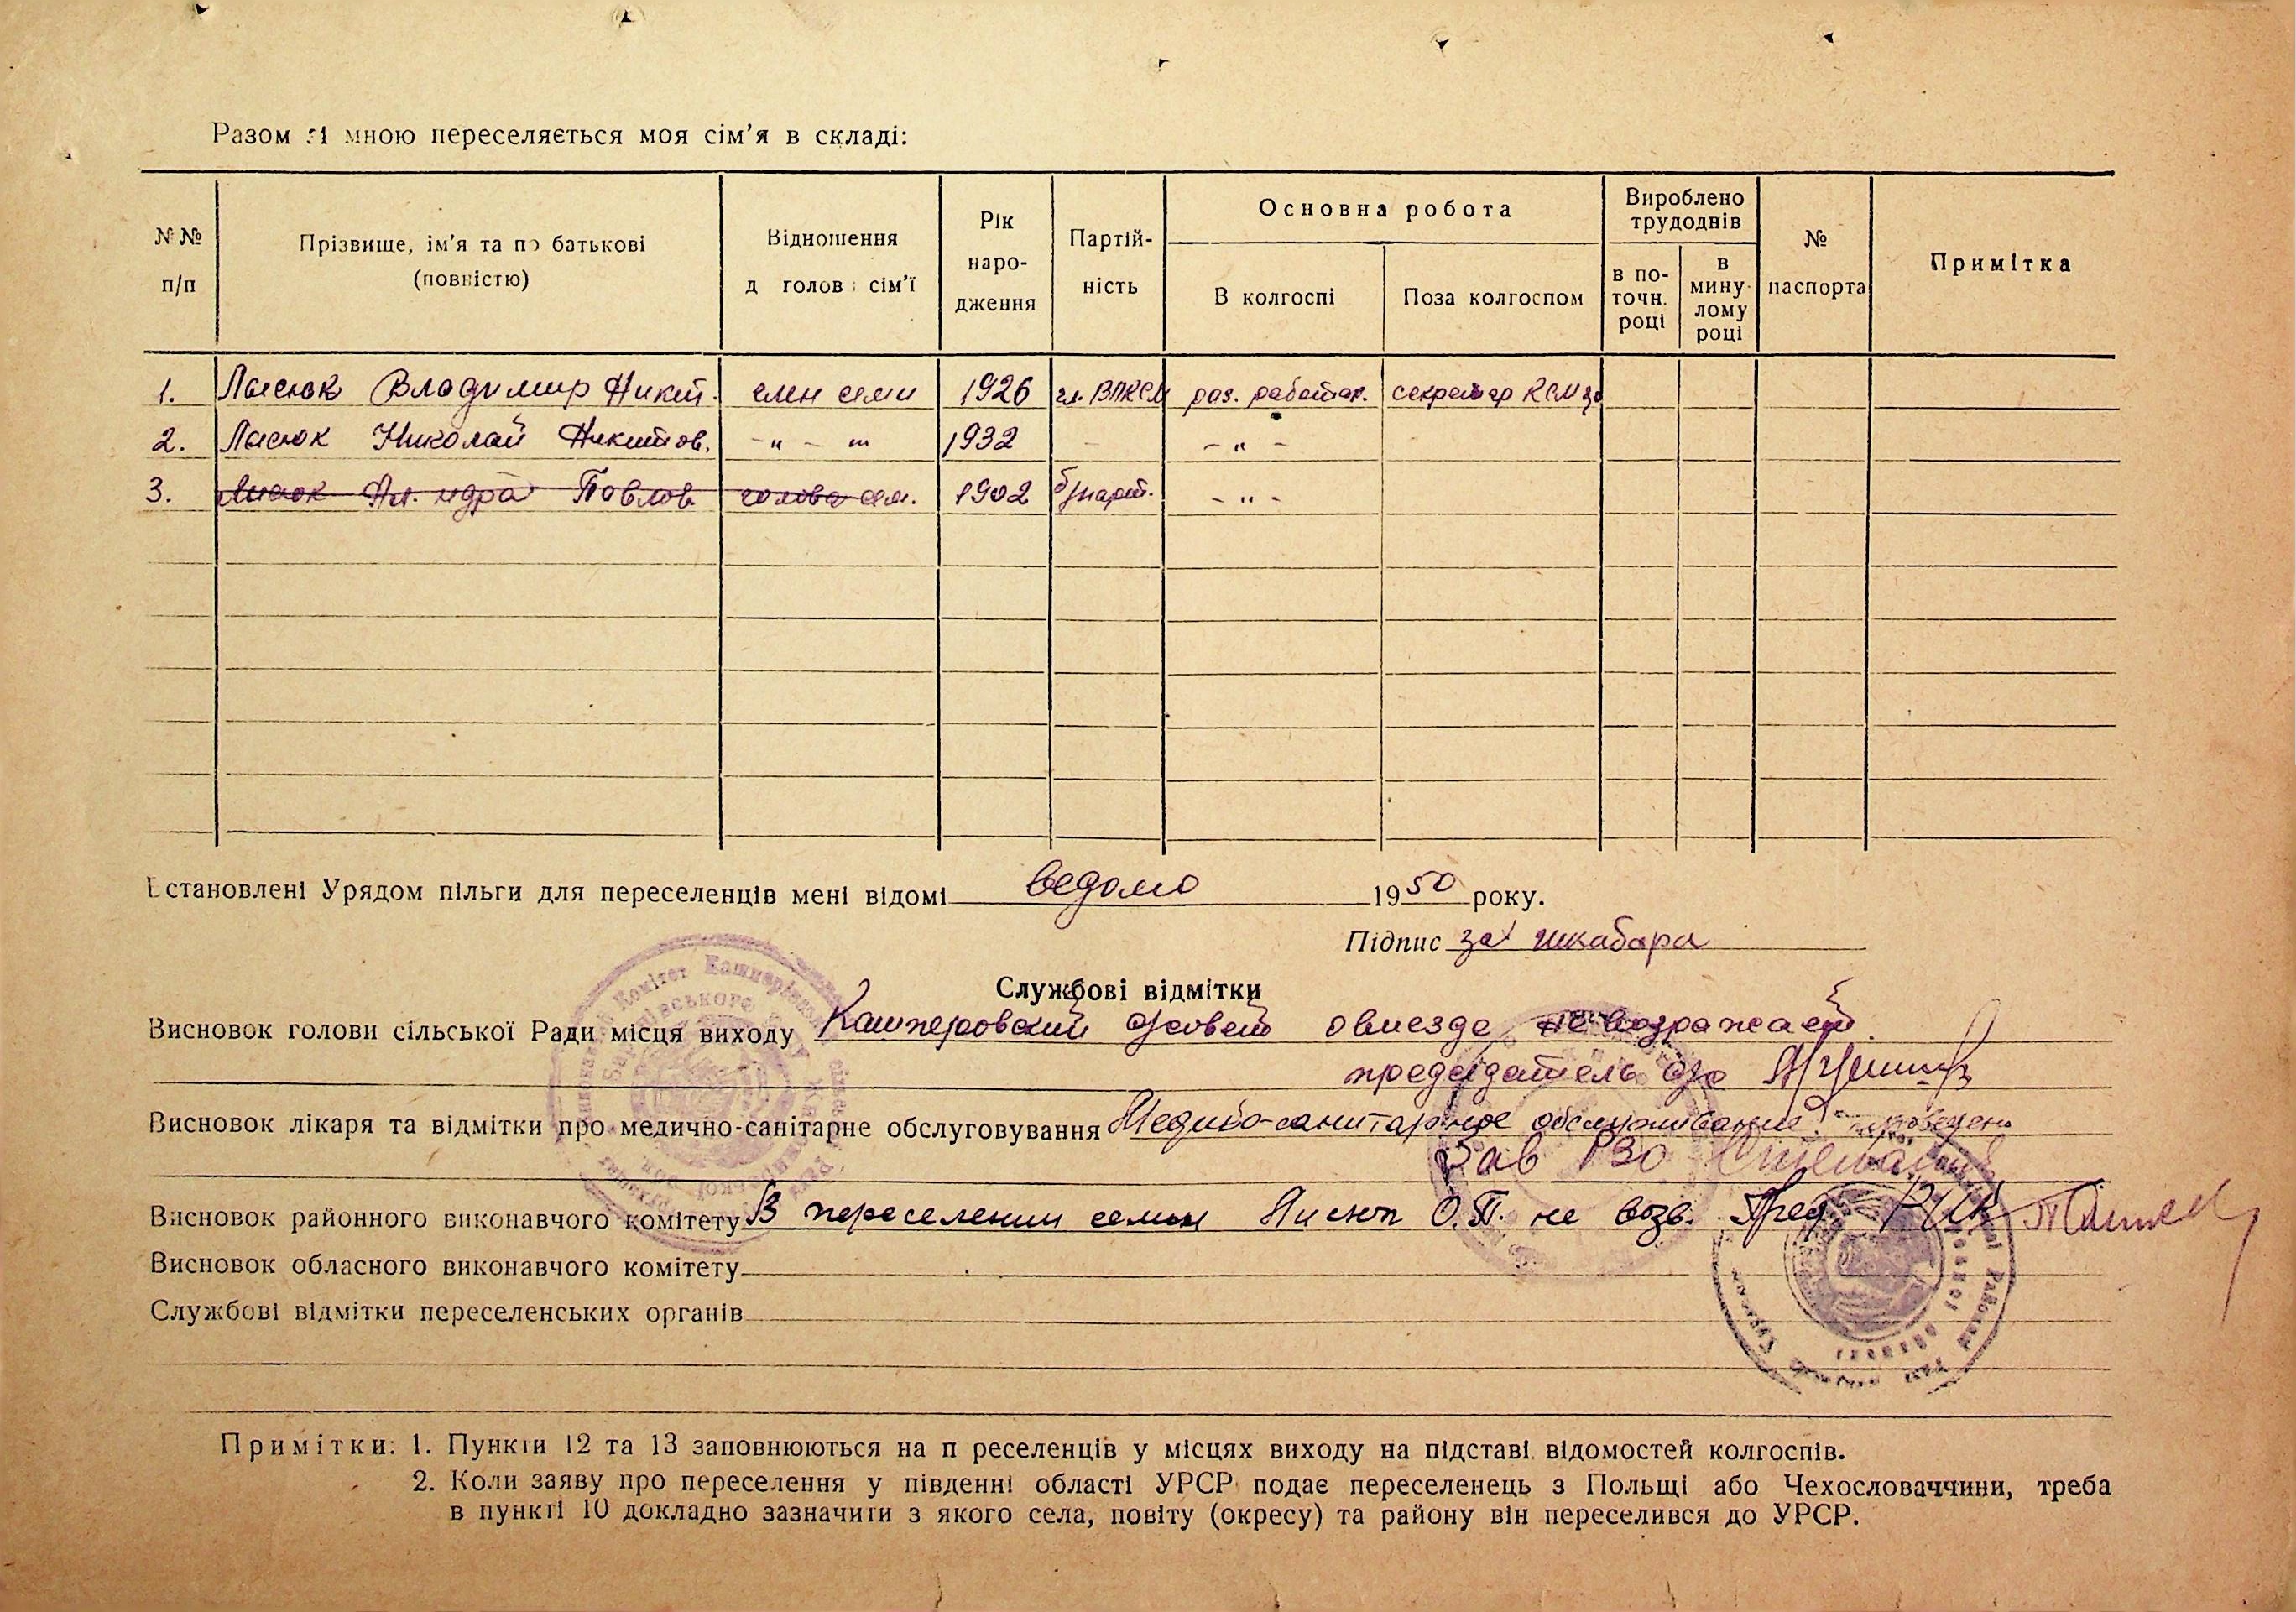 Разом зі мною переселяється моя сім'я в складі:
№№ п/п
Прізвище, ім'я та по батькові (повністю)
Відношення д голов сім'ї
Рік народження
Партійність
Основна робота
В колгоспі
Поза колгоспом
Вироблено трудоднів
в поточн. році
в минулому році
№ паспорта
Примітка
1. Лисюк Владимир Никит. член семи 1926 чл. ВЛКСМ раз. работах. секретар КСМ
2. Лисюк Николай Никитов. -"- 1932 - -"-
3. Лисюк Павлов. голова сем. 1902 б/парт. -"-
Встановлені Урядом пільги для переселенців мені відомі ведомо 1950 року.
Підпис за шкабара
Службові відмітки
Висновок голови сільської Ради місця виходу Кашперовский с/совет о выезде не возражает
председатель с/с
Висновок лікаря та відмітки про медично-санітарне обслуговування Медико-санитарное обслуживание проведено
Зав РЗО
Висновок районного виконавчого комітету В переселении семьи Лисюк О.П. не возр. Пред. РИК
Висновок обласного виконавчого комітету
Службові відмітки переселенських органів
Примітки: 1. Пункти 12 та 13 заповнюються на п реселенців у місцях виходу на підставі відомостей колгоспів.
2. Коли заяву про переселення у південні області УРСР подає переселенець з Польщі або Чехословаччини, треба
в пункті 10 докладно зазначити з якого села, повіту (окресу) та району він переселився до УРСР.